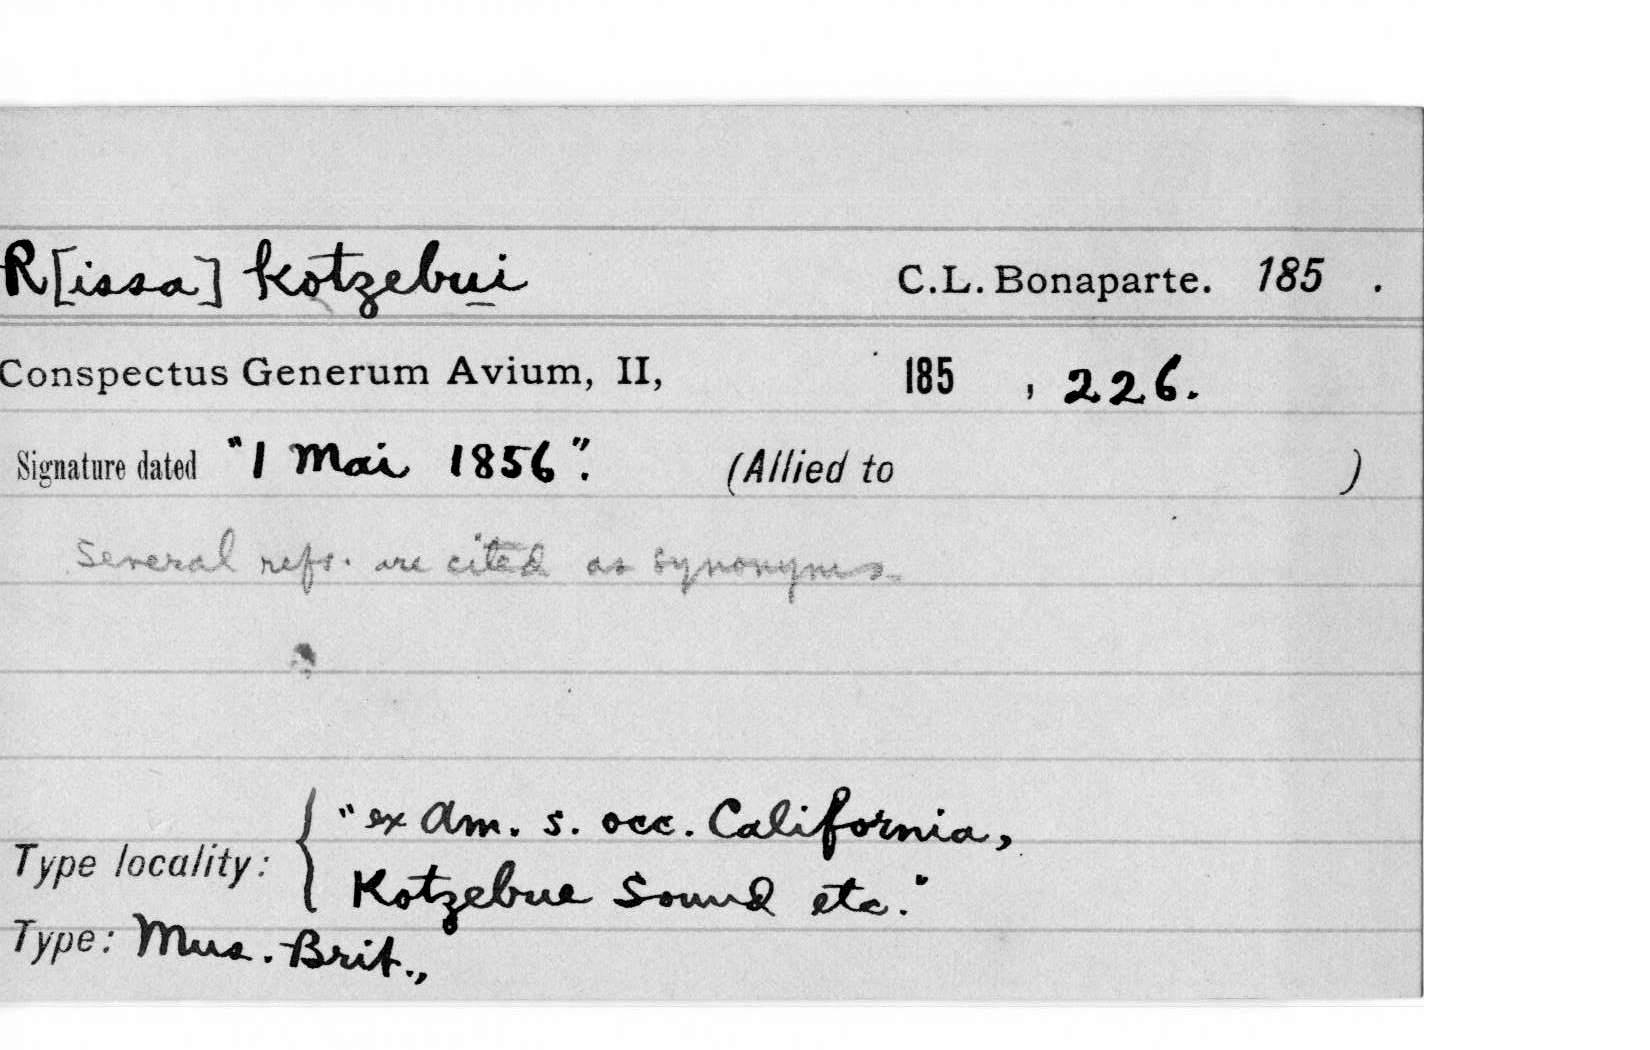 R[issa] kotzebui C.L. Bonaparte. 185 .
Conspectus Generum Avium, II, 185 , 226.
Signature dated "1 Mai 1856". (Allied to )
Several refs. are cited as synonyms.
"ex Am. s. occ. California,
Type locality: Kotzebue Sound etc."
Type: Mus. Brit.,